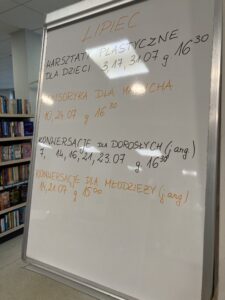 LIPIEC
WARSZTATY PLASTYCZNE
DLA DZIECI 3, 17, 31.07 g 16³⁰
SENSORYKA DLA MALUCHA
10, 24.07 g. 16³⁰
KONWERSACJE DLA DOROSŁYCH (j. ang)
7, 14, 16, 21, 23.07 g. 16³⁰
KONWERSACJE DLA MŁODZIEŻY (j. ang)
14, 21.07 g 15⁰⁰